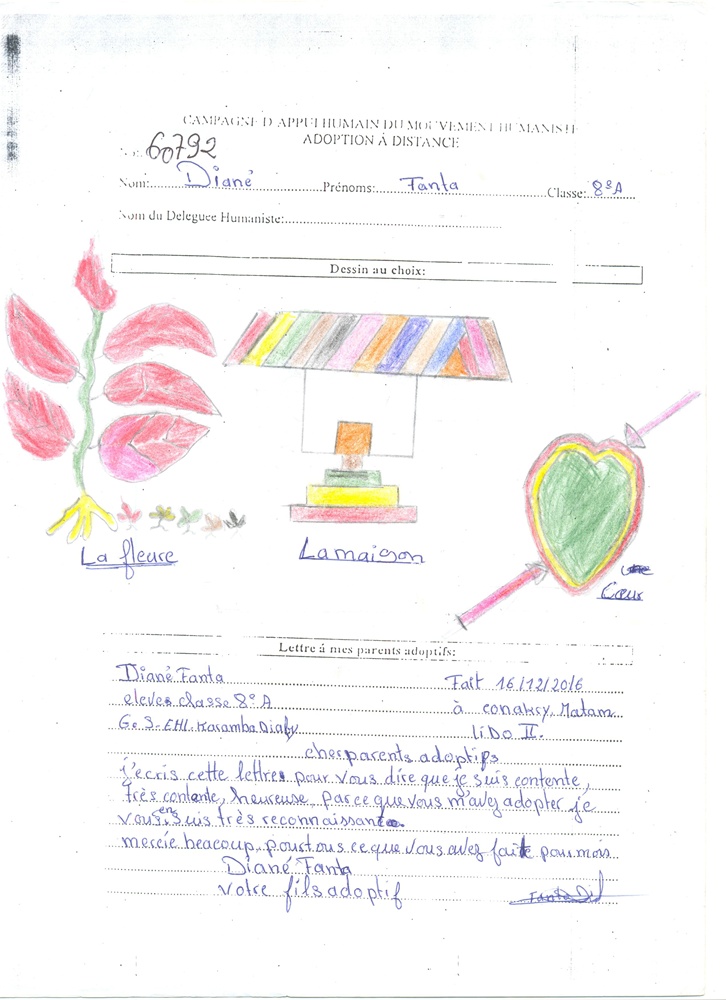 CAMPAGNE D'APPUI HUMAIN DU MOUVEMENT HUMANISTE
ADOPTION À DISTANCE
No:. 60792
Nom: Diané Prénoms: Fanta Classe: 8è A
Nom du Deleguee Humaniste:
Dessin au choix:
La fleure
La maison
Cœur
Lettre á mes parents adoptifs:
Diané Fanta Fait 16/12/2016
eleves classe 8è A à conakry. Matam
G.S-EHI. Karamba Diaby lido II.
cher parents adoptifs
j'ecris cette lettres pour vous dire que je suis contente,
très contente, heureuse parce que vous m'avez adopter je
vous en suis très reconnaissante
mercie beacoup pourtous ce que vous avez fait pour mois
Diané Fanta
votre fils adoptif